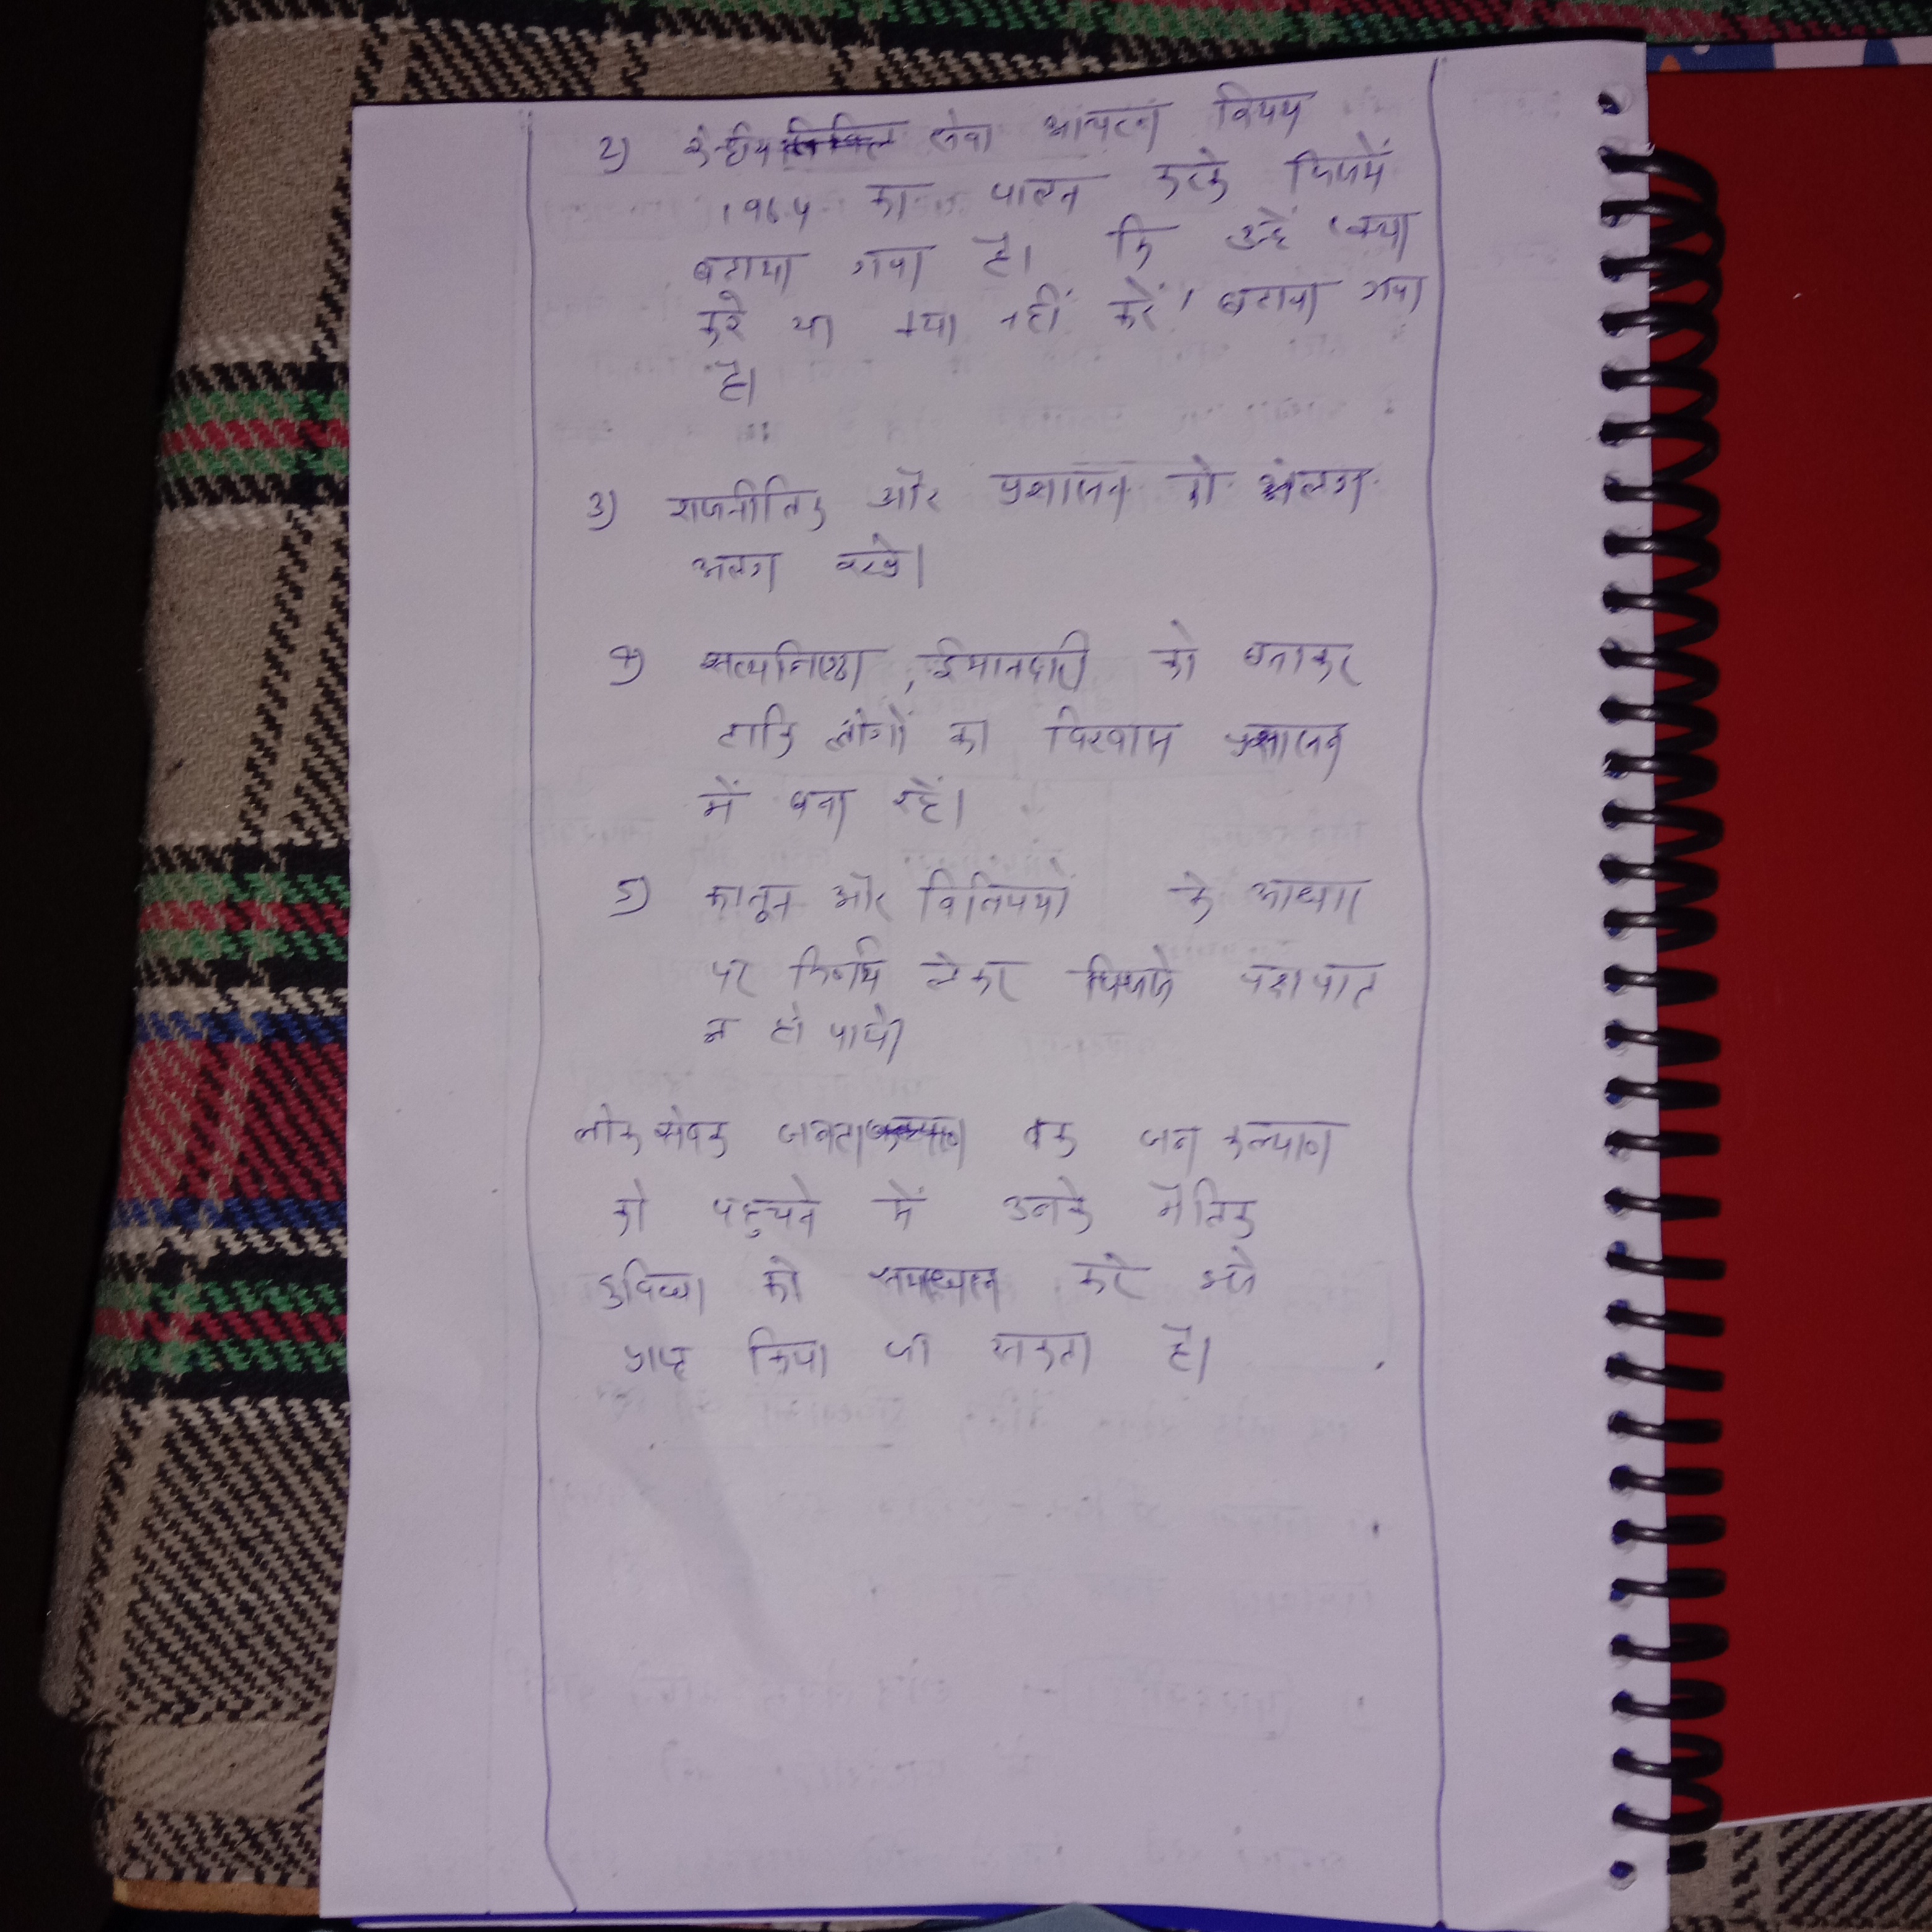 2) केन्द्रीय सेवा आचरण विषय
1964 का पालन करके जिसमें
बताया गया है। कि उन्हें 'क्या
करे या क्या नहीं करें' बताया गया
है।
3) राजनीतिक और प्रशासन को अलग
अलग रखे।
4) सत्यनिष्ठा, ईमानदारी को बनाकर
ताकि लोगों का विश्वास प्रशासन
में बना रहें।
5) कानून और विनियमों के आधार
पर निर्णय लेकर जिससे पक्षपात
न हो पाये।
लोकसेवक जनता तक जन कल्याण
को पहुचने में उनके नैतिक
दुविधा को समाधान करें उसे
प्राप्त किया जा सकता है।